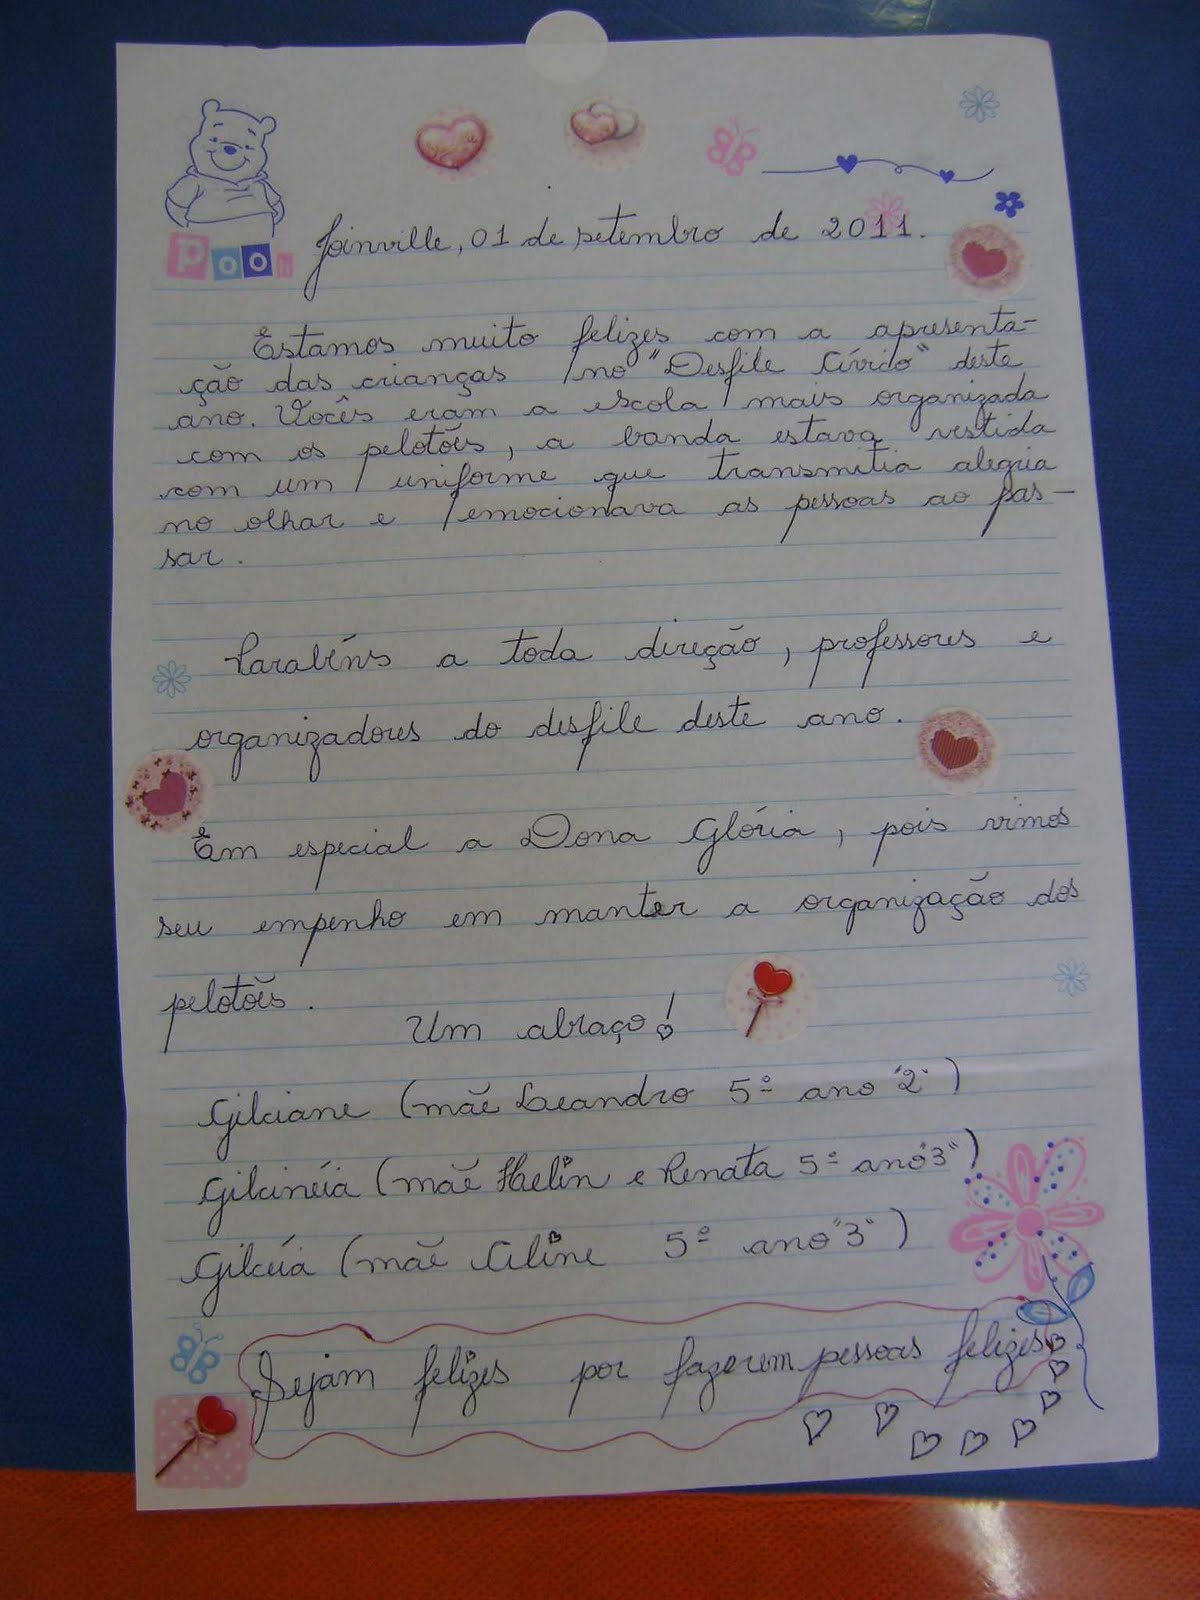 Pooh
Joinville, 01 de setembro de 2011.
Estamos muito felizes com a apresenta-
ção das crianças no "Desfile Cívico" deste
ano. Vocês eram a escola mais organizada
com os pelotões, a banda estava vestida
com um uniforme que transmitia alegria
no olhar e emocionava as pessoas ao pas-
sar.
Parabéns a toda direção, professores e
organizadores do desfile deste ano.
Em especial a Dona Glória, pois vimos
seu empenho em manter a organização dos
pelotões.
Um abraço!
Gilciane (mãe Leandro 5º ano "2")
Gilcinéia (mãe Haelin e Renata 5º ano "3")
Gilcéia (mãe Aline 5º ano "3")
Sejam felizes por fazerem pessoas felizes